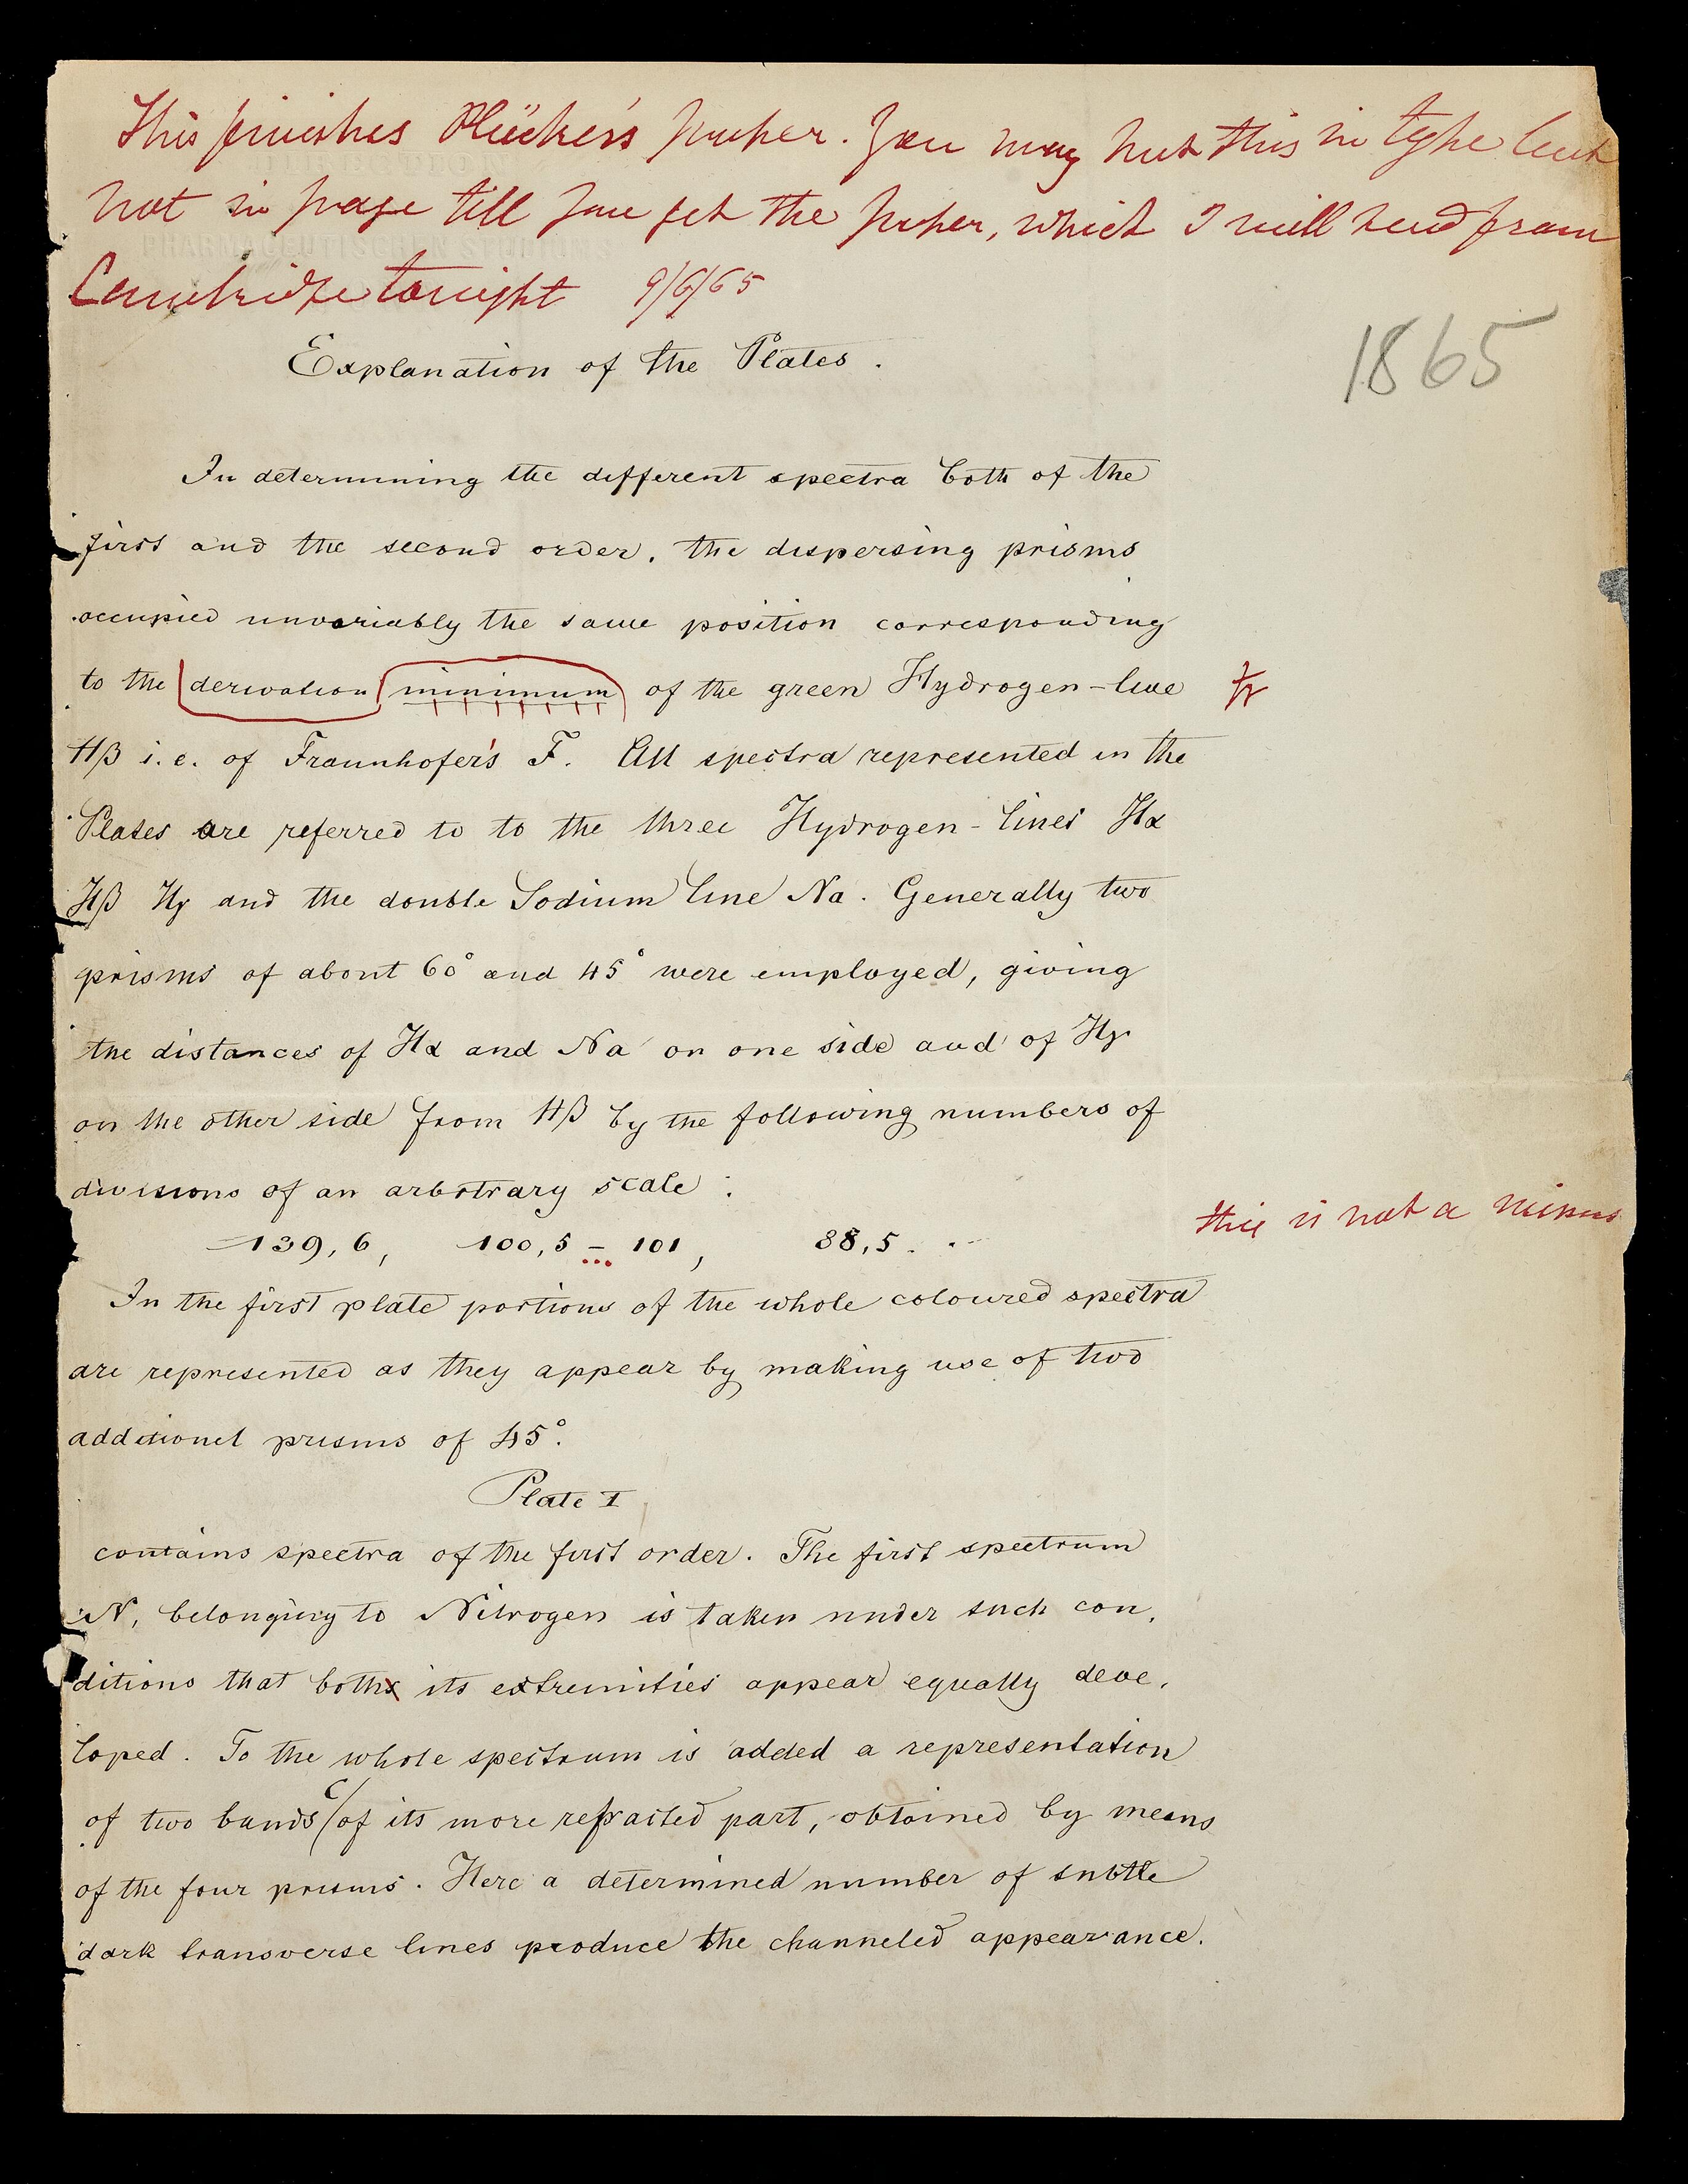 This finishes Plücker's paper. You may put this in type but
not in page till you get the paper, which I will send from
Cambridge tonight 9/6/65
1865
Explanation of the Plates.
In determining the different spectra both of the
first and the second order, the dispersing prisms
occupied unvariably the same position corresponding
to the derivation minimum of the green Hydrogen-line tr
Hβ i.e. of Fraunhofer's F. All spectra represented in the
Plates are referred to to the three Hydrogen-lines Hα
Hβ Hγ and the double Sodium line Na. Generally two
prisms of about 60° and 45° were employed, giving
the distances of Hα and Na on one side and of Hγ
on the other side from Hβ by the following numbers of
divisions of an arbitrary scale:
this is not a minus
139,6, 100,5 – 101, 88,5.
In the first plate portions of the whole coloured spectra
are represented as they appear by making use of two
additionel prisms of 45°.
Plate I
contains spectra of the first order. The first spectrum
N, belonging to Nitrogen is taken under such con,
ditions that both its extremities appear equally deve,
loped. To the whole spectrum is added a representation
of two bands of its more refracted part, obtained by means
of the four prisms. Here a determined number of subtle
dark transverse lines produce the channeled appearance.